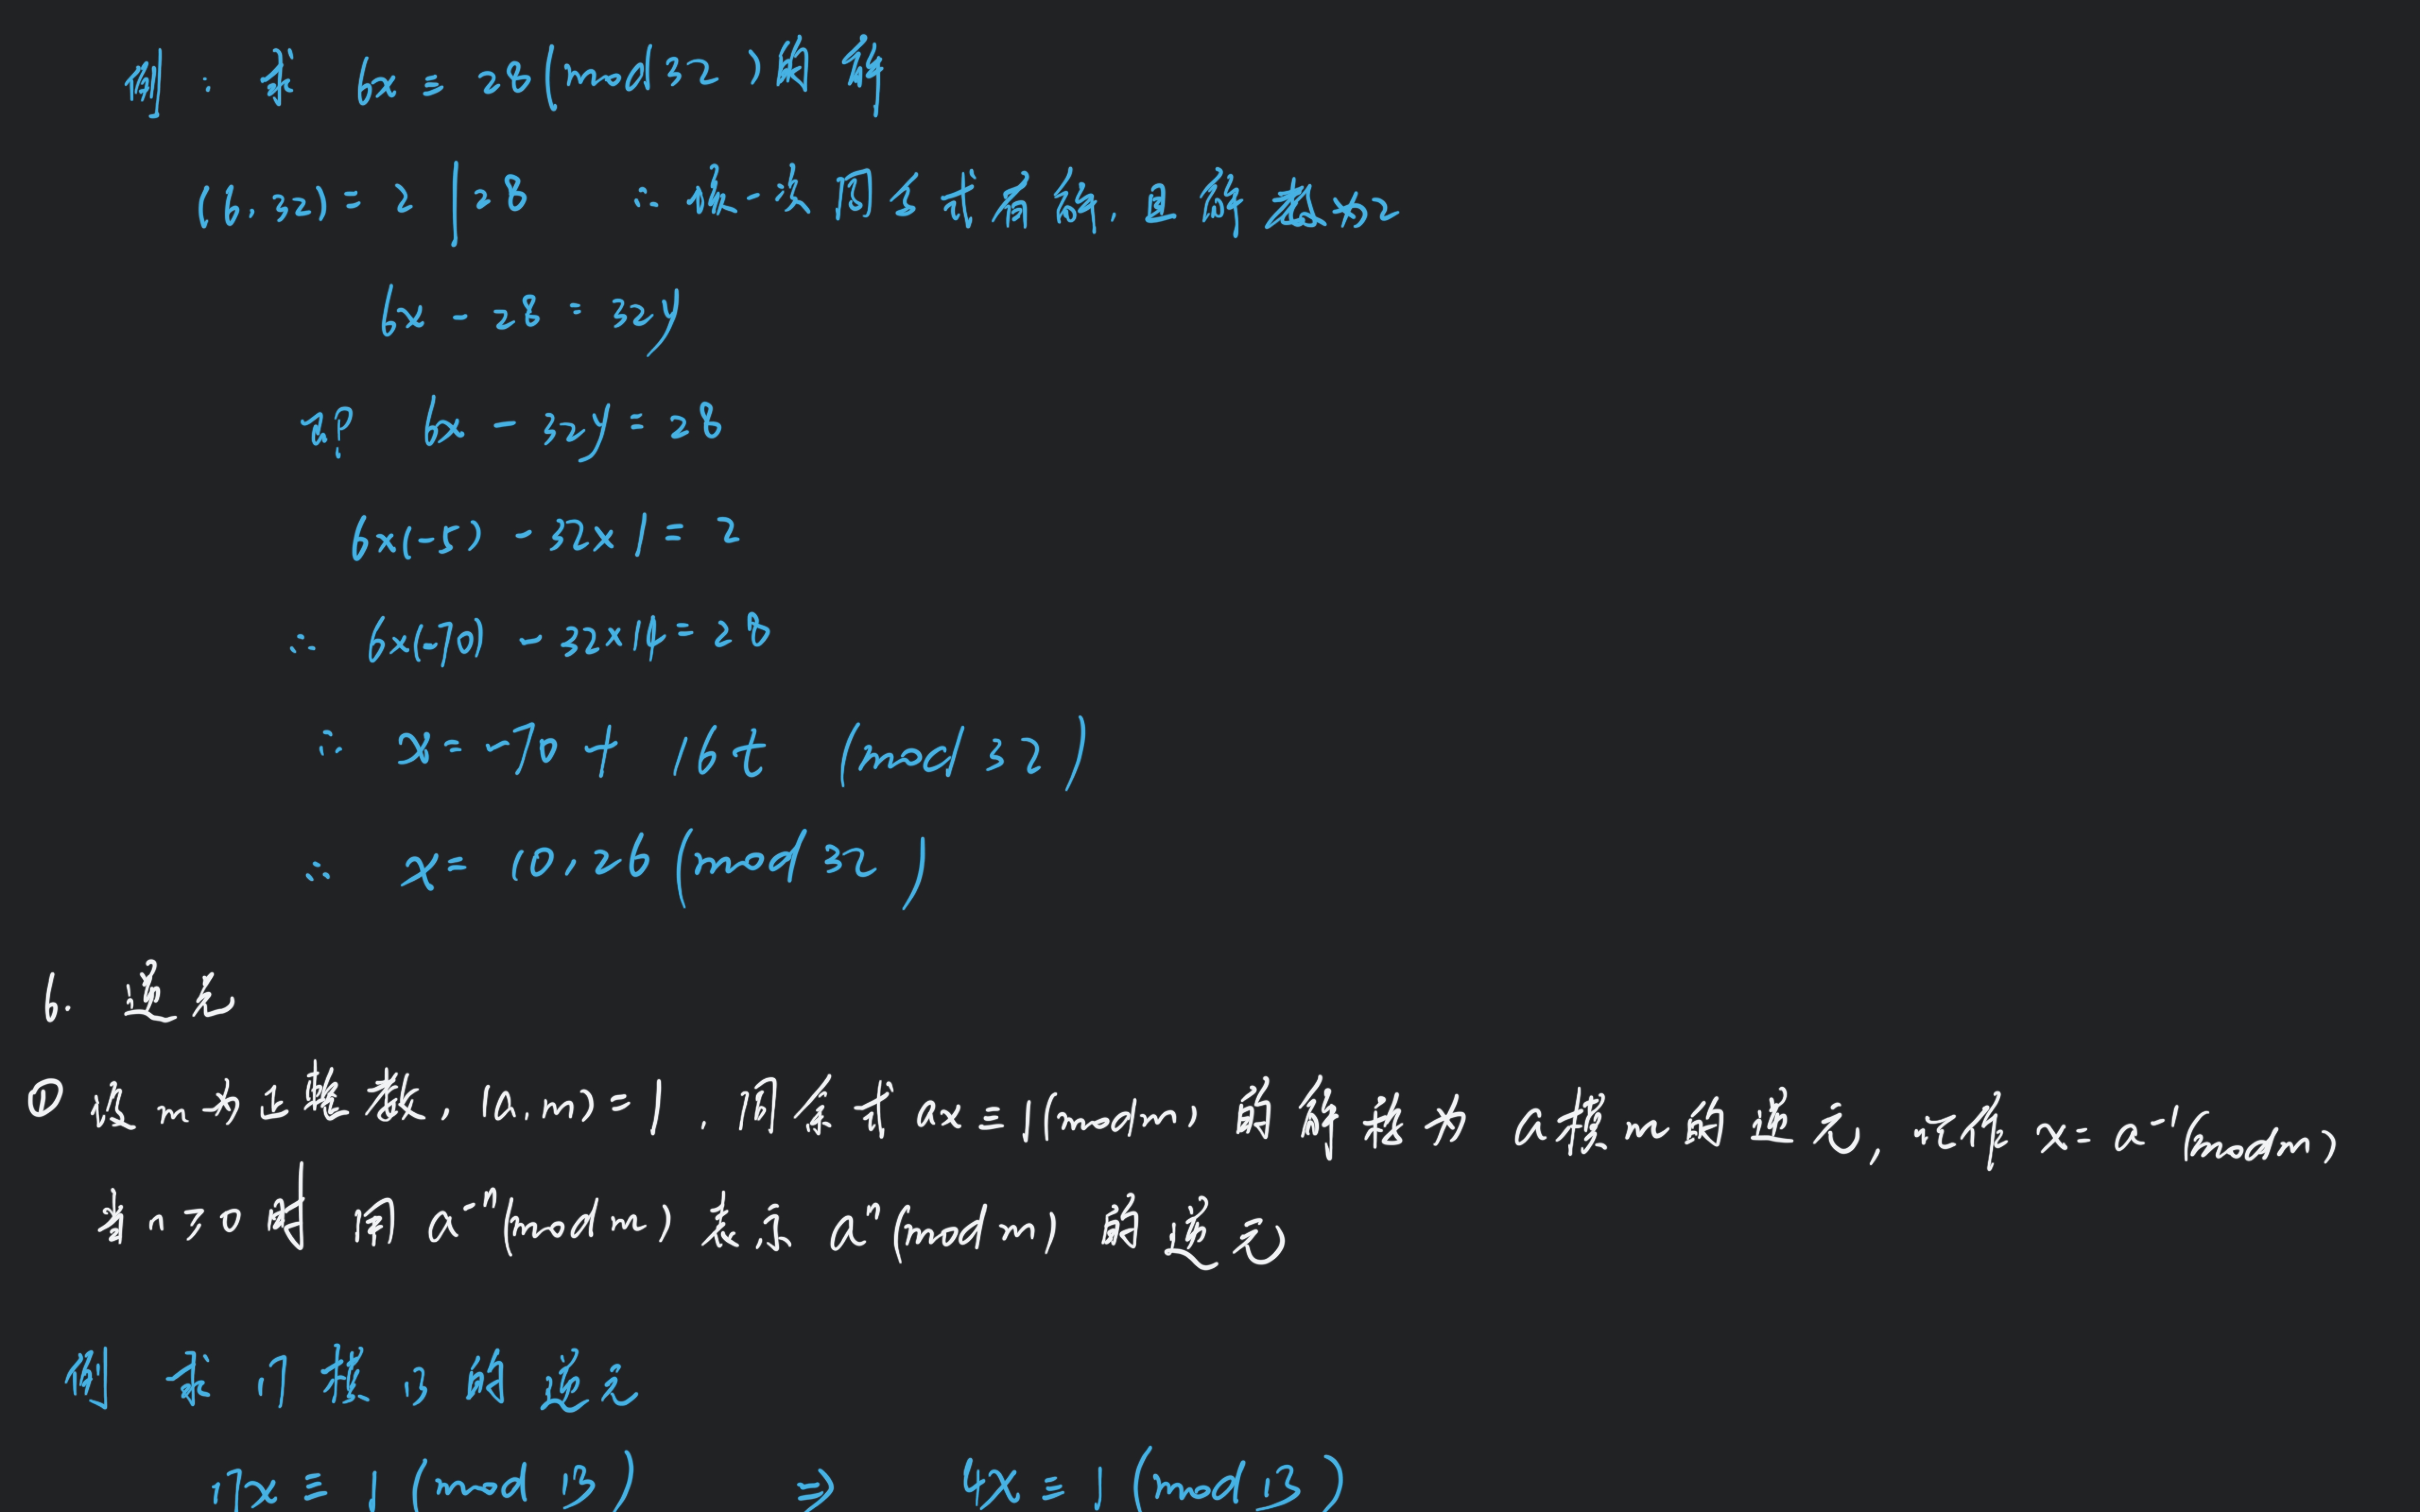 例：求 6x ≡ 28 (mod 32) 的解
(6, 32) = 2 | 28 ∴ 该一次同余式有解, 且解数为2
6x - 28 = 32y
即 6x - 32y = 28
6×(-5) - 32×1 = 2
∴ 6×(-70) - 32×14 = 28
∴ x = -70 + 16t (mod 32)
∴ x = 10, 26 (mod 32)
6. 逆元
① 设 m 为正整数, (a, m) = 1, 同余式 ax ≡ 1 (mod m) 的解称为 a 模 m 的逆元, 记作 x = a⁻¹ (mod m)
当 n ≥ 0 时 用 a⁻ⁿ (mod m) 表示 aⁿ (mod m) 的逆元
例 求 17 模 13 的逆元
17x ≡ 1 (mod 13) ⇒ 4x ≡ 1 (mod 13)